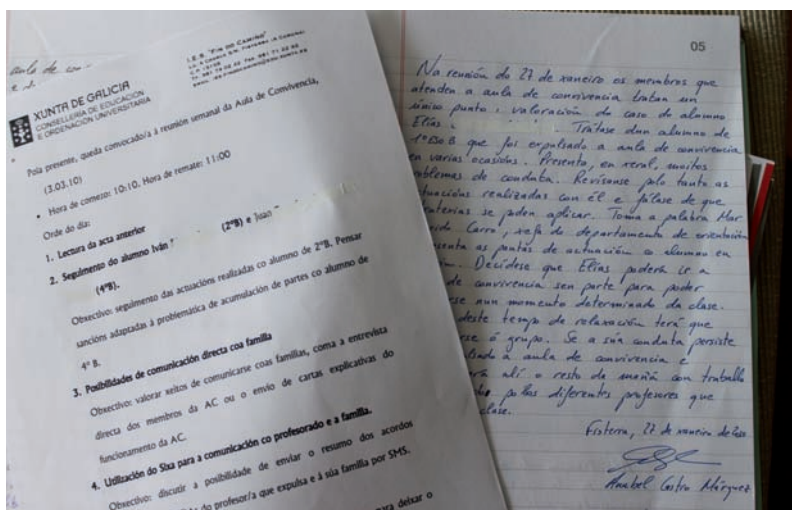 aula de con-
e d.
XUNTA DE GALICIA
CONSELLERÍA DE EDUCACIÓN
E ORDENACIÓN UNIVERSITARIA
I.E.S. "FIN DO CAMIÑO"
Pola presente, queda convocado/a á reunión semanal da Aula de Convivencia,
(3.03.10)
• Hora de comezo: 10:10. Hora de remate: 11:00
Orde do día:
1. Lectura da acta anterior
2. Seguimento do alumno Iván (2ºB) e Juan
(4ºB).
Obxectivo: seguimento das actuacións realizadas co alumno de 2ºB. Pensar
sancións adaptadas á problemática de acumulación de partes co alumno de
4º B.
3. Posibilidades de comunicación directa coa familia
Obxectivo: valorar xeitos de comunicarse coas familias, coma a entrevista
directa dos membros da AC ou o envío de cartas explicativas do
funcionamento da AC.
4. Utilización do Sixa para a comunicación co profesorado e a familia.
Obxectivo: discutir a posibilidade de enviar o resumo dos acordos
do profesor/a que expulsa e á súa familia por SMS.
para deixar o
05
Na reunión do 27 de xaneiro os membros que
atenden a aula de convivencia tratan un
único punto: valoración do caso do alumno
Elías . Trátase dun alumno de
1º ESO B que foi expulsado a aula de convivencia
en varias ocasións. Presenta, en xeral, moitos
problemas de conduta. Revísanse polo tanto as
actuacións realizadas con él e fálase de que
se poden aplicar. Toma a palabra Mar
Carro, xefa do departamento de orientación
as pautas de actuación co alumno en
Decídese que Elías poderá ir a
de convivencia sen parte para poder
nun momento determinado da clase.
deste tempo de relaxación terá que
ó grupo. Se a súa conduta persiste
a aula de convivencia e
alí o resto da mañá con traballo
polos diferentes profesores que
clase.
Fisterra, 27 de xaneiro de
Maribel Castro Márquez